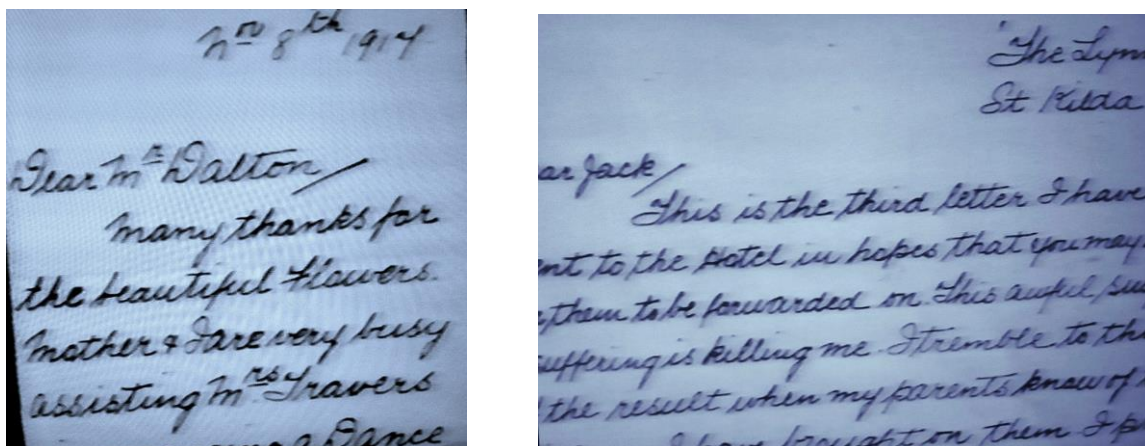 Nov 8th 1917
Dear Mr Dalton/
Many thanks for
the beautiful Flowers.
Mother & I are very busy
assisting Mrs Travers
a Dance
The Lyn
St Kilda
ar Jack/
This is the third letter I have
nt to the Hotel in hopes that you may
them to be forwarded on. This awful
uffering is killing me. I tremble to th
the result when my parents know of
I have brought on them I